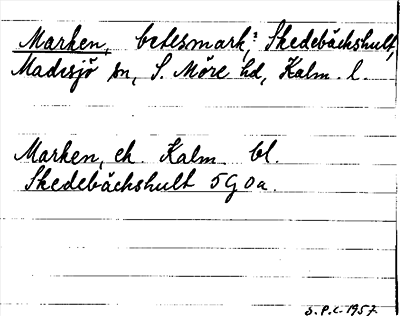 Marken, betesmark, Skedebäckshult,
Madesjö sn, S. Möre hd, Kalm. l.
Marken, ek. Kalm. bl.
Skedebäckshult 5G0a.
S.P.L. 1957